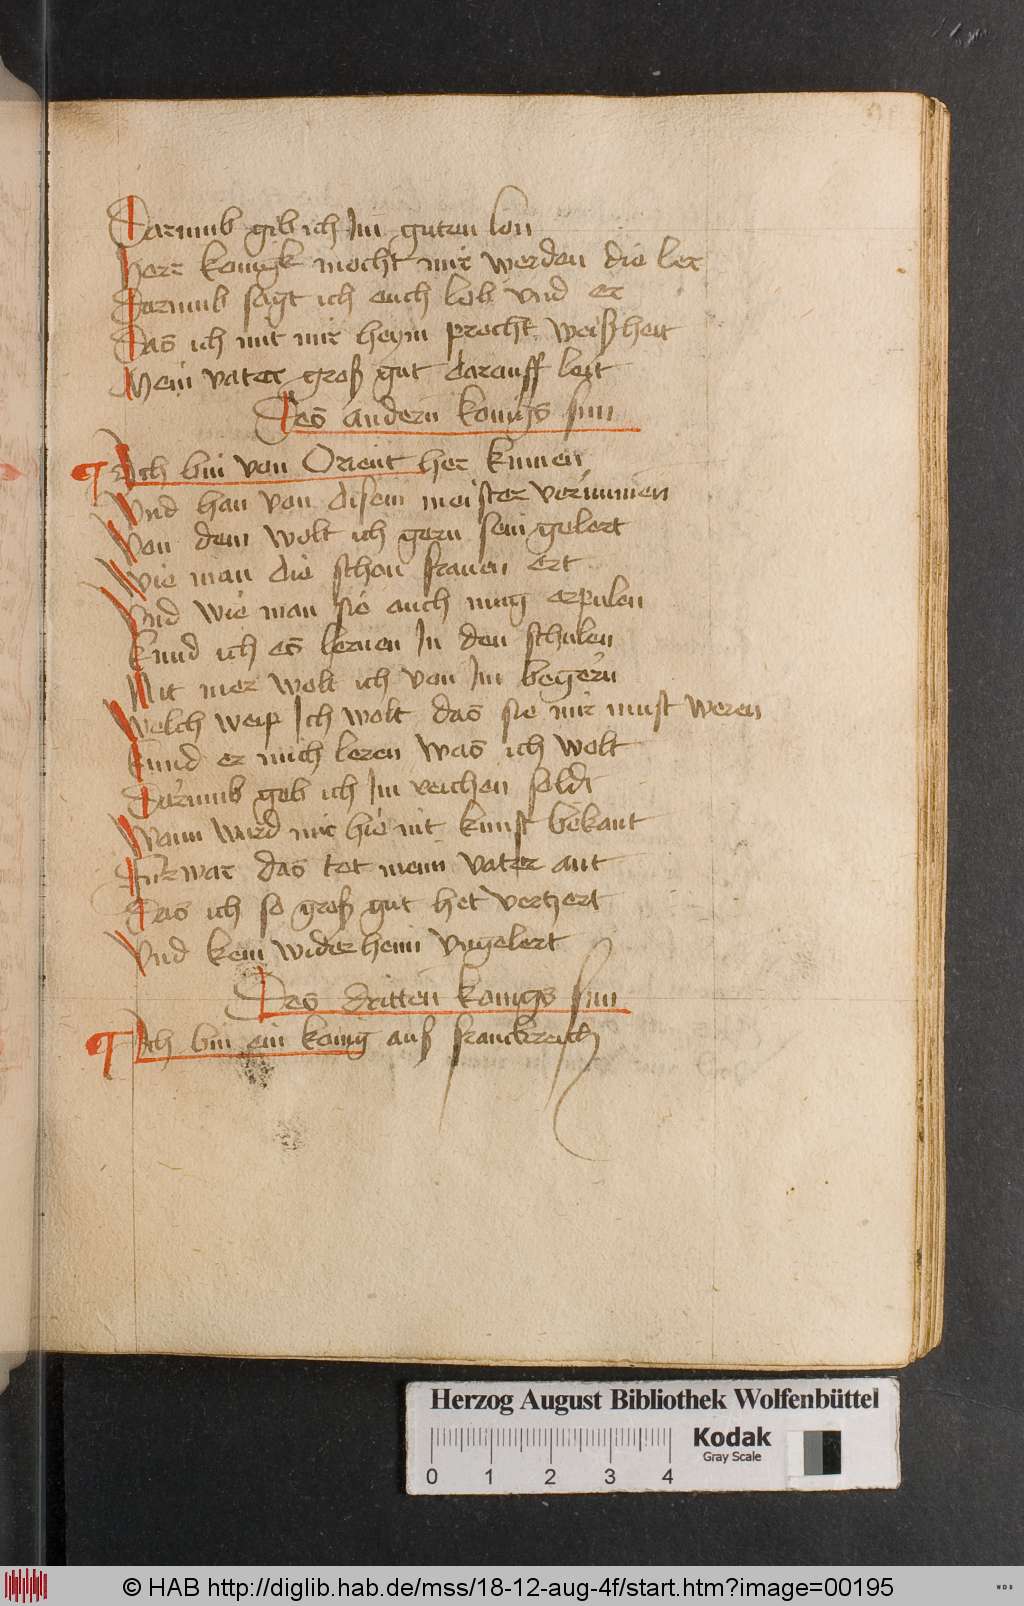 Darumb gib ich Im guten lon
Herr konigk mocht mir werden die ler
Darumb sagt ich euch lob vnd er
Das ich mit mir heym precht weißheit
Mein vater groß gut darauff leit
Des andern konigs sun
Ich bin von Orient her kumen
Vnd han von disem meister vernumen
Von dem wolt ich gern sein gelert
Wie man die schon frauen ert
Vnd wie man sie auch mug erpulen
Kund ich es lernen In den schulen
Nit mer wolt ich von Im begern
Welch weip Ich wolt das sie mir must weren
Kund er mich leren was ich wolt
Darumb geb ich Im reichen soldt
Wann wird mir hie nit kunst bekant
Furwar das tet meim vater ant
Das ich so groß gut het vertzert
Vnd kem wider heim vngelert
Des dritten konigs sun
Ich bin ein konig auß franckreich
Herzog August Bibliothek Wolfenbüttel
Kodak
Gray Scale
0 1 2 3 4
© HAB http://diglib.hab.de/mss/18-12-aug-4f/start.htm?image=00195